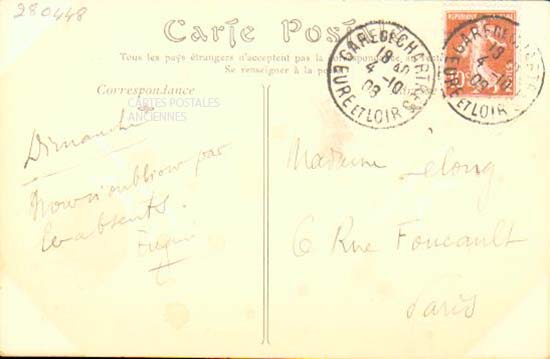 280448
Carte Postale
Tous les pays étrangers n'acceptent pas la correspondance au
Se renseigner à la
Correspondance
CARTES POSTALES
ANCIENNES
Dimanche
Nous n'oublions pas
les absents.
GARE DE CHARTRES
18
4 -10
08
EURE ET LOIR
REPUBLIQUE
10
GARE DE
18
4 -10
08
EURE ET LOIR
Madame Lelong
6 Rue Foucault
Paris